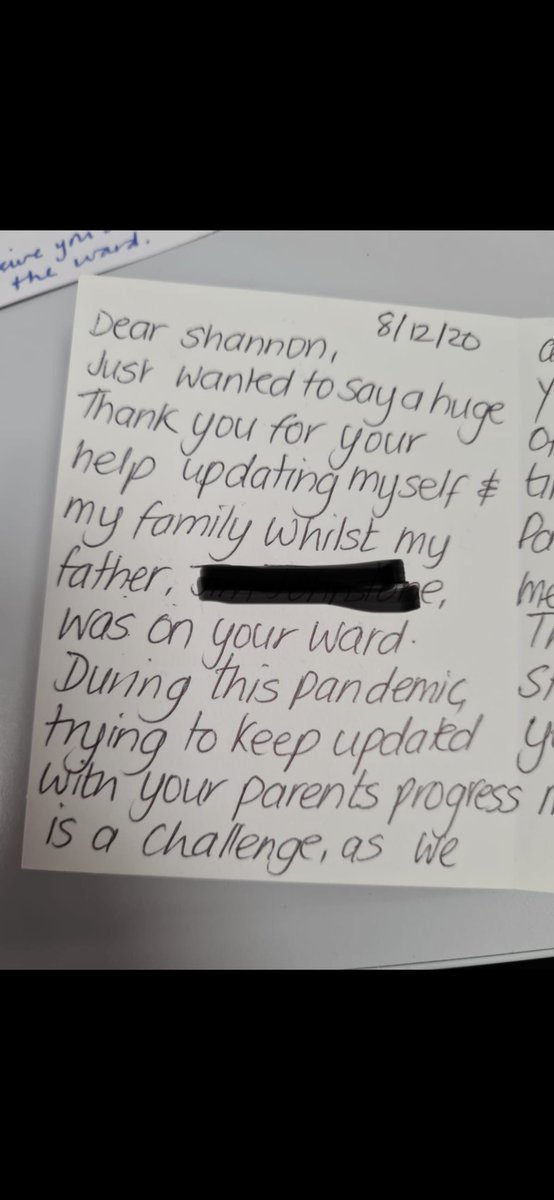 the ward.
8/12/20
Dear Shannon,
Just wanted to say a huge
Thank you for your
help updating myself &
my family whilst my
father,
was on your ward.
During this pandemic,
trying to keep updated
with your parents progress
is a challenge, as we